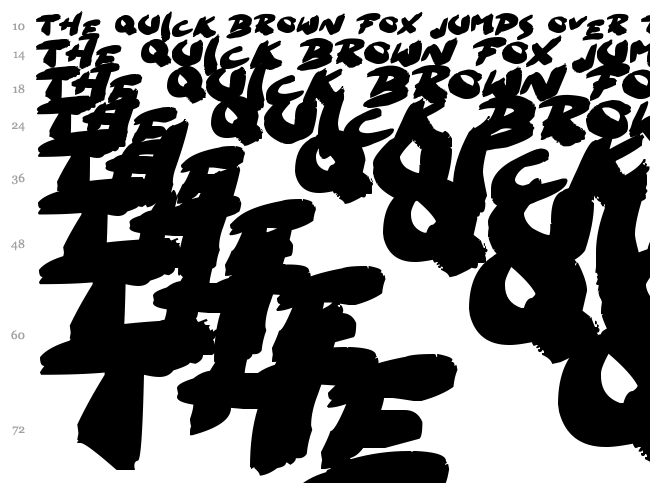 10 THE QUICK BROWN FOX JUMPS OVER T
14 THE QUICK BROWN FOX JUM
18 THE QUICK BROWN FO
24 THE QUICK BROW
36 THE QUICK
48 THE QUI
60 THE QU
72 THE Q